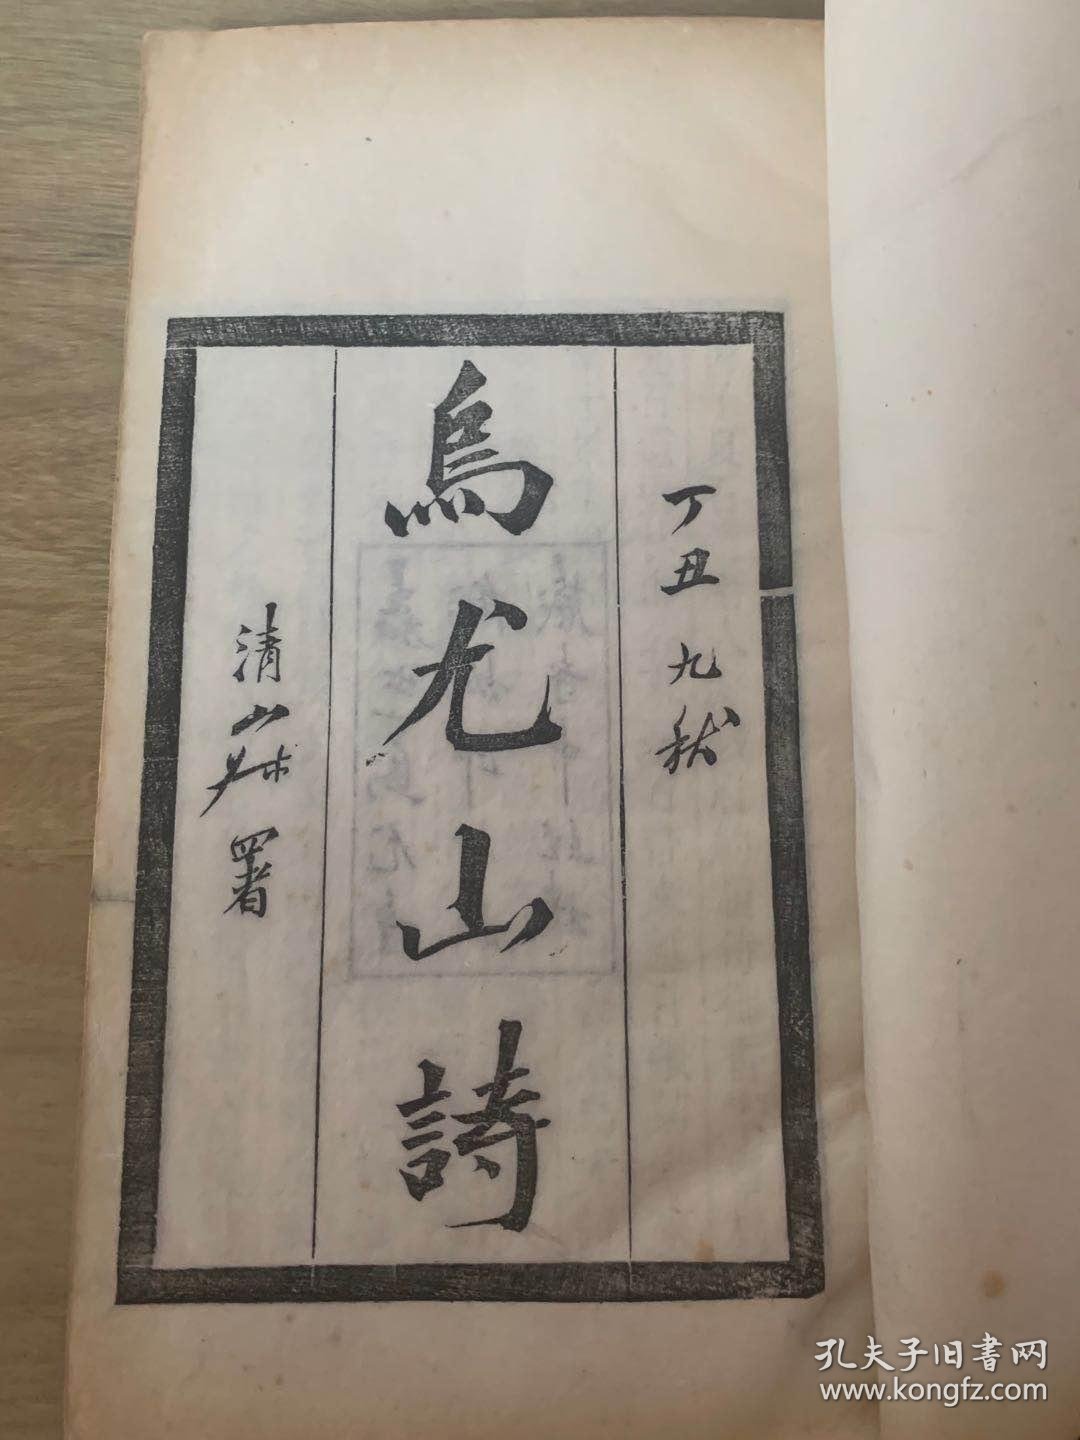 丁丑九秋
烏尤山詩
清山署
孔夫子旧书网
www.kongfz.com